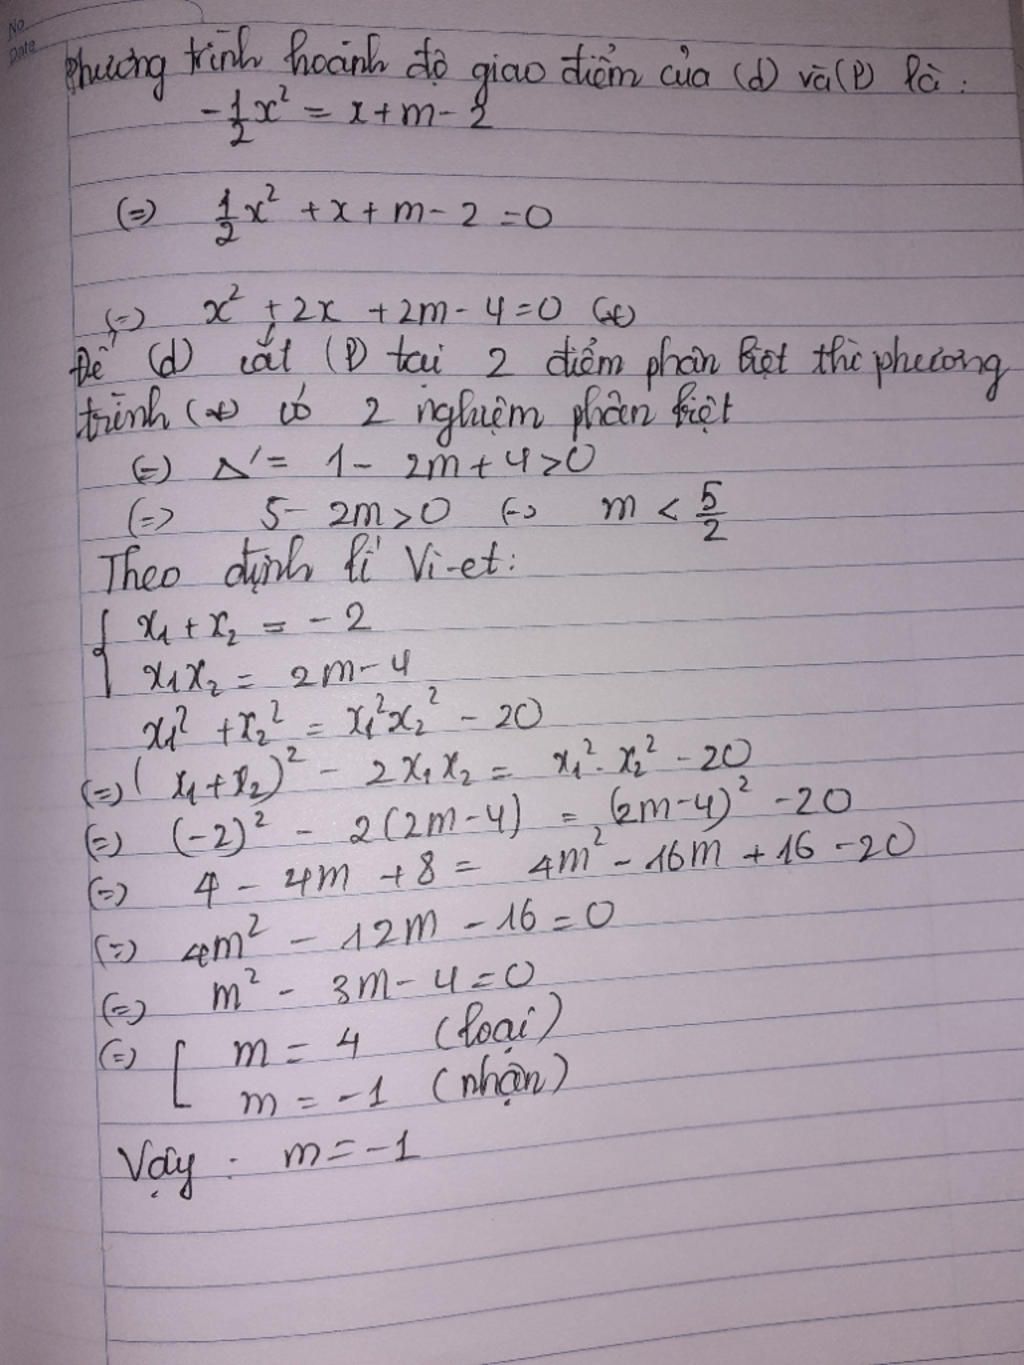 No.
Date
Phương trình hoành độ giao điểm của (d) và (P) là :
-1/2x² = x + m - 2
(=) 1/2x² + x + m - 2 = 0
(=) x² + 2x + 2m - 4 = 0 (*)
Để (d) cắt (P) tại 2 điểm phân biệt thì phương
trình (*) có 2 nghiệm phân biệt
(=) Δ' = 1 - 2m + 4 > 0
(=) 5 - 2m > 0 (=) m < 5/2
Theo định lí Vi-et:
{ x₁ + x₂ = -2
x₁x₂ = 2m - 4
x₁² + x₂² = x₁²x₂² - 20
(=) (x₁ + x₂)² - 2x₁x₂ = x₁².x₂² - 20
(=) (-2)² - 2(2m-4) = (2m-4)² - 20
(=) 4 - 4m + 8 = 4m² - 16m + 16 - 20
(=) 4m² - 12m - 16 = 0
(=) m² - 3m - 4 = 0
(=) [ m = 4 (loại)
m = -1 (nhận)
Vậy : m = -1